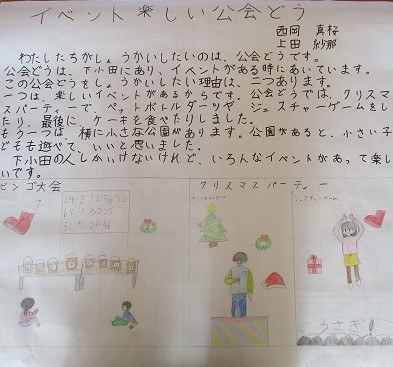 イベント楽しい公会どう
西岡 真桜
上田 紗那
わたしたちがしょうかいしたいのは、公会どうです。
公会どうは、下小田にあり、イベントがある時にあいています。
この公会どうをしょうかいしたい理由は、二つあります。
一つは、楽しいイベントがあるからです。公会どうでは、クリスマ
スパーティーで、ペットボトルダーツや ジェスチャーゲームをし
たり、最後に、ケーキを食べたりしました。
もう一つは、横に小さな公園があります。公園があると、小さい子
どもも遊べて、いいと思いました。
下小田の人しかいけないけれど、いろんなイベントがあって楽し
いです。
ビンゴ大会
クリスマスパーティー
ジェスチャーゲーム
うさぎ!